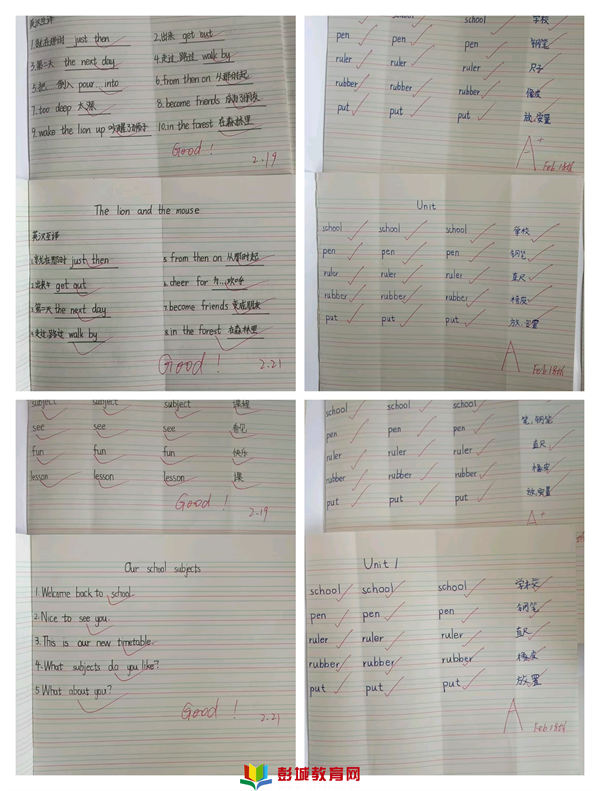 英汉互译
1.就在那时 just then 2.出来 get out
3.第二天 the next day 4.走过,路过 walk by
5.把…倒入 pour … into 6.from then on 从那时起
7.too deep 太深 8.become friends 成为了朋友
9.wake the lion up 吵醒了狮子 10.in the forest 在森林里
Good !
2.19
The lion and the mouse
英汉互译
1.就在那时 just then 5.from then on 从那时起
2.出来 get out 6.cheer for 为…欢呼
3.第二天 the next day 7.become friends 变成朋友
4.走过,路过 walk by 8.in the forest 在森林里
Good !
2.21
school school school 学校
pen pen pen 钢笔
ruler ruler ruler 尺子
rubber rubber rubber 橡皮
put put put 放,安置
A+
Feb 18th
Unit
school school school 学校
pen pen pen 钢笔
ruler ruler ruler 直尺
rubber rubber rubber 橡皮
put put put 放,安置
A
Feb 18th
subject subject subject 课程
see see see 看见
fun fun fun 快乐
lesson lesson lesson 课
Good !
2.19
Our school subjects
1.Welcome back to school.
2.Nice to see you.
3.This is our new timetable.
4.What subjects do you like?
5.What about you?
Good !
2.21
school school school
pen pen pen 笔,钢笔
ruler ruler ruler 直尺
rubber rubber rubber 橡皮
put put put 放,安置
A+
Unit 1
school school school 学校
pen pen pen 钢笔
ruler ruler ruler 直尺
rubber rubber rubber 橡皮
put put put 放置
A
Feb 18th
彭城教育网